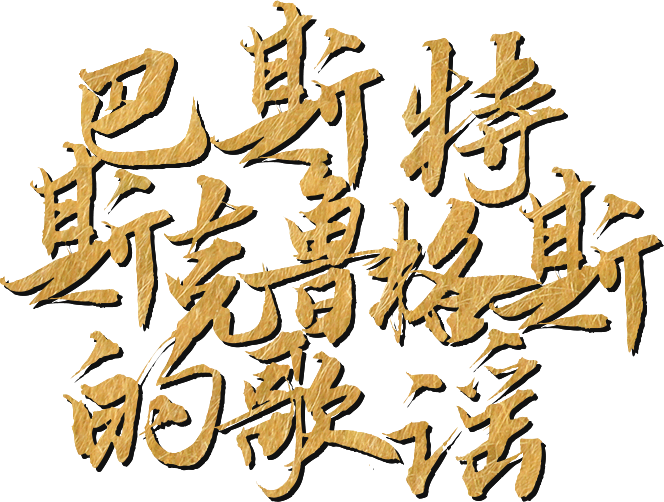 巴斯特
斯克鲁格斯
的歌谣